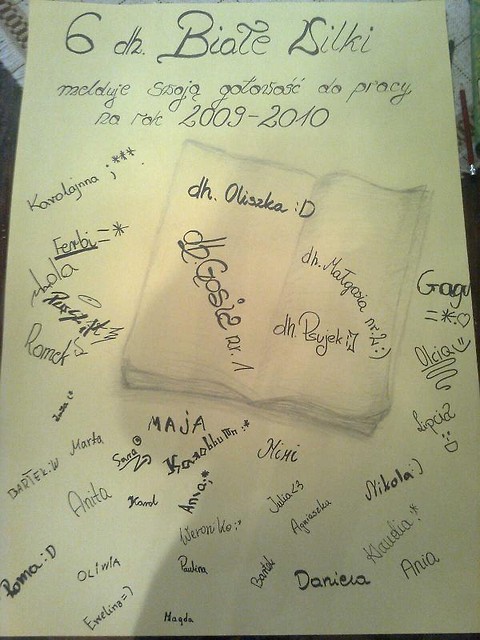 6 dh. Białe Wilki
melduje swoją gotowość do pracy
na rok 2009-2010
Karolajnna ;***
dh. Oliszka :D
Ferbi =*
dh Gosia nr. 1
dh. Małgosia nr. 2 :)
Lola
Gagu
=*♡
dh. Psyjek ;]
Romek
Olcia
Lipcia
MAJA
Marta
Sara
Mimi
BARTEK
Nikola :)
Anita
Karol
Ania ;*
Julia <3
Agnieszka
Weronika ;*
Klaudia ;*
Roma :D
OLIWIA
Paulina
Bartek
Daniela
Ania
Ewelina =)
Magda